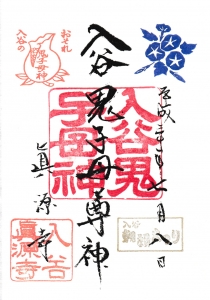 平成二十年七月八日
入谷鬼子母尊神
真源寺
おそれ
入谷の
鬼子母神
入谷鬼
子母神
入谷
朝顔まつり
入谷
真源寺